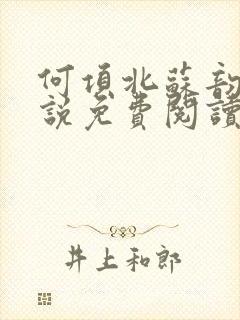 何項北蘇韵
說免費閱讀
井上和郎